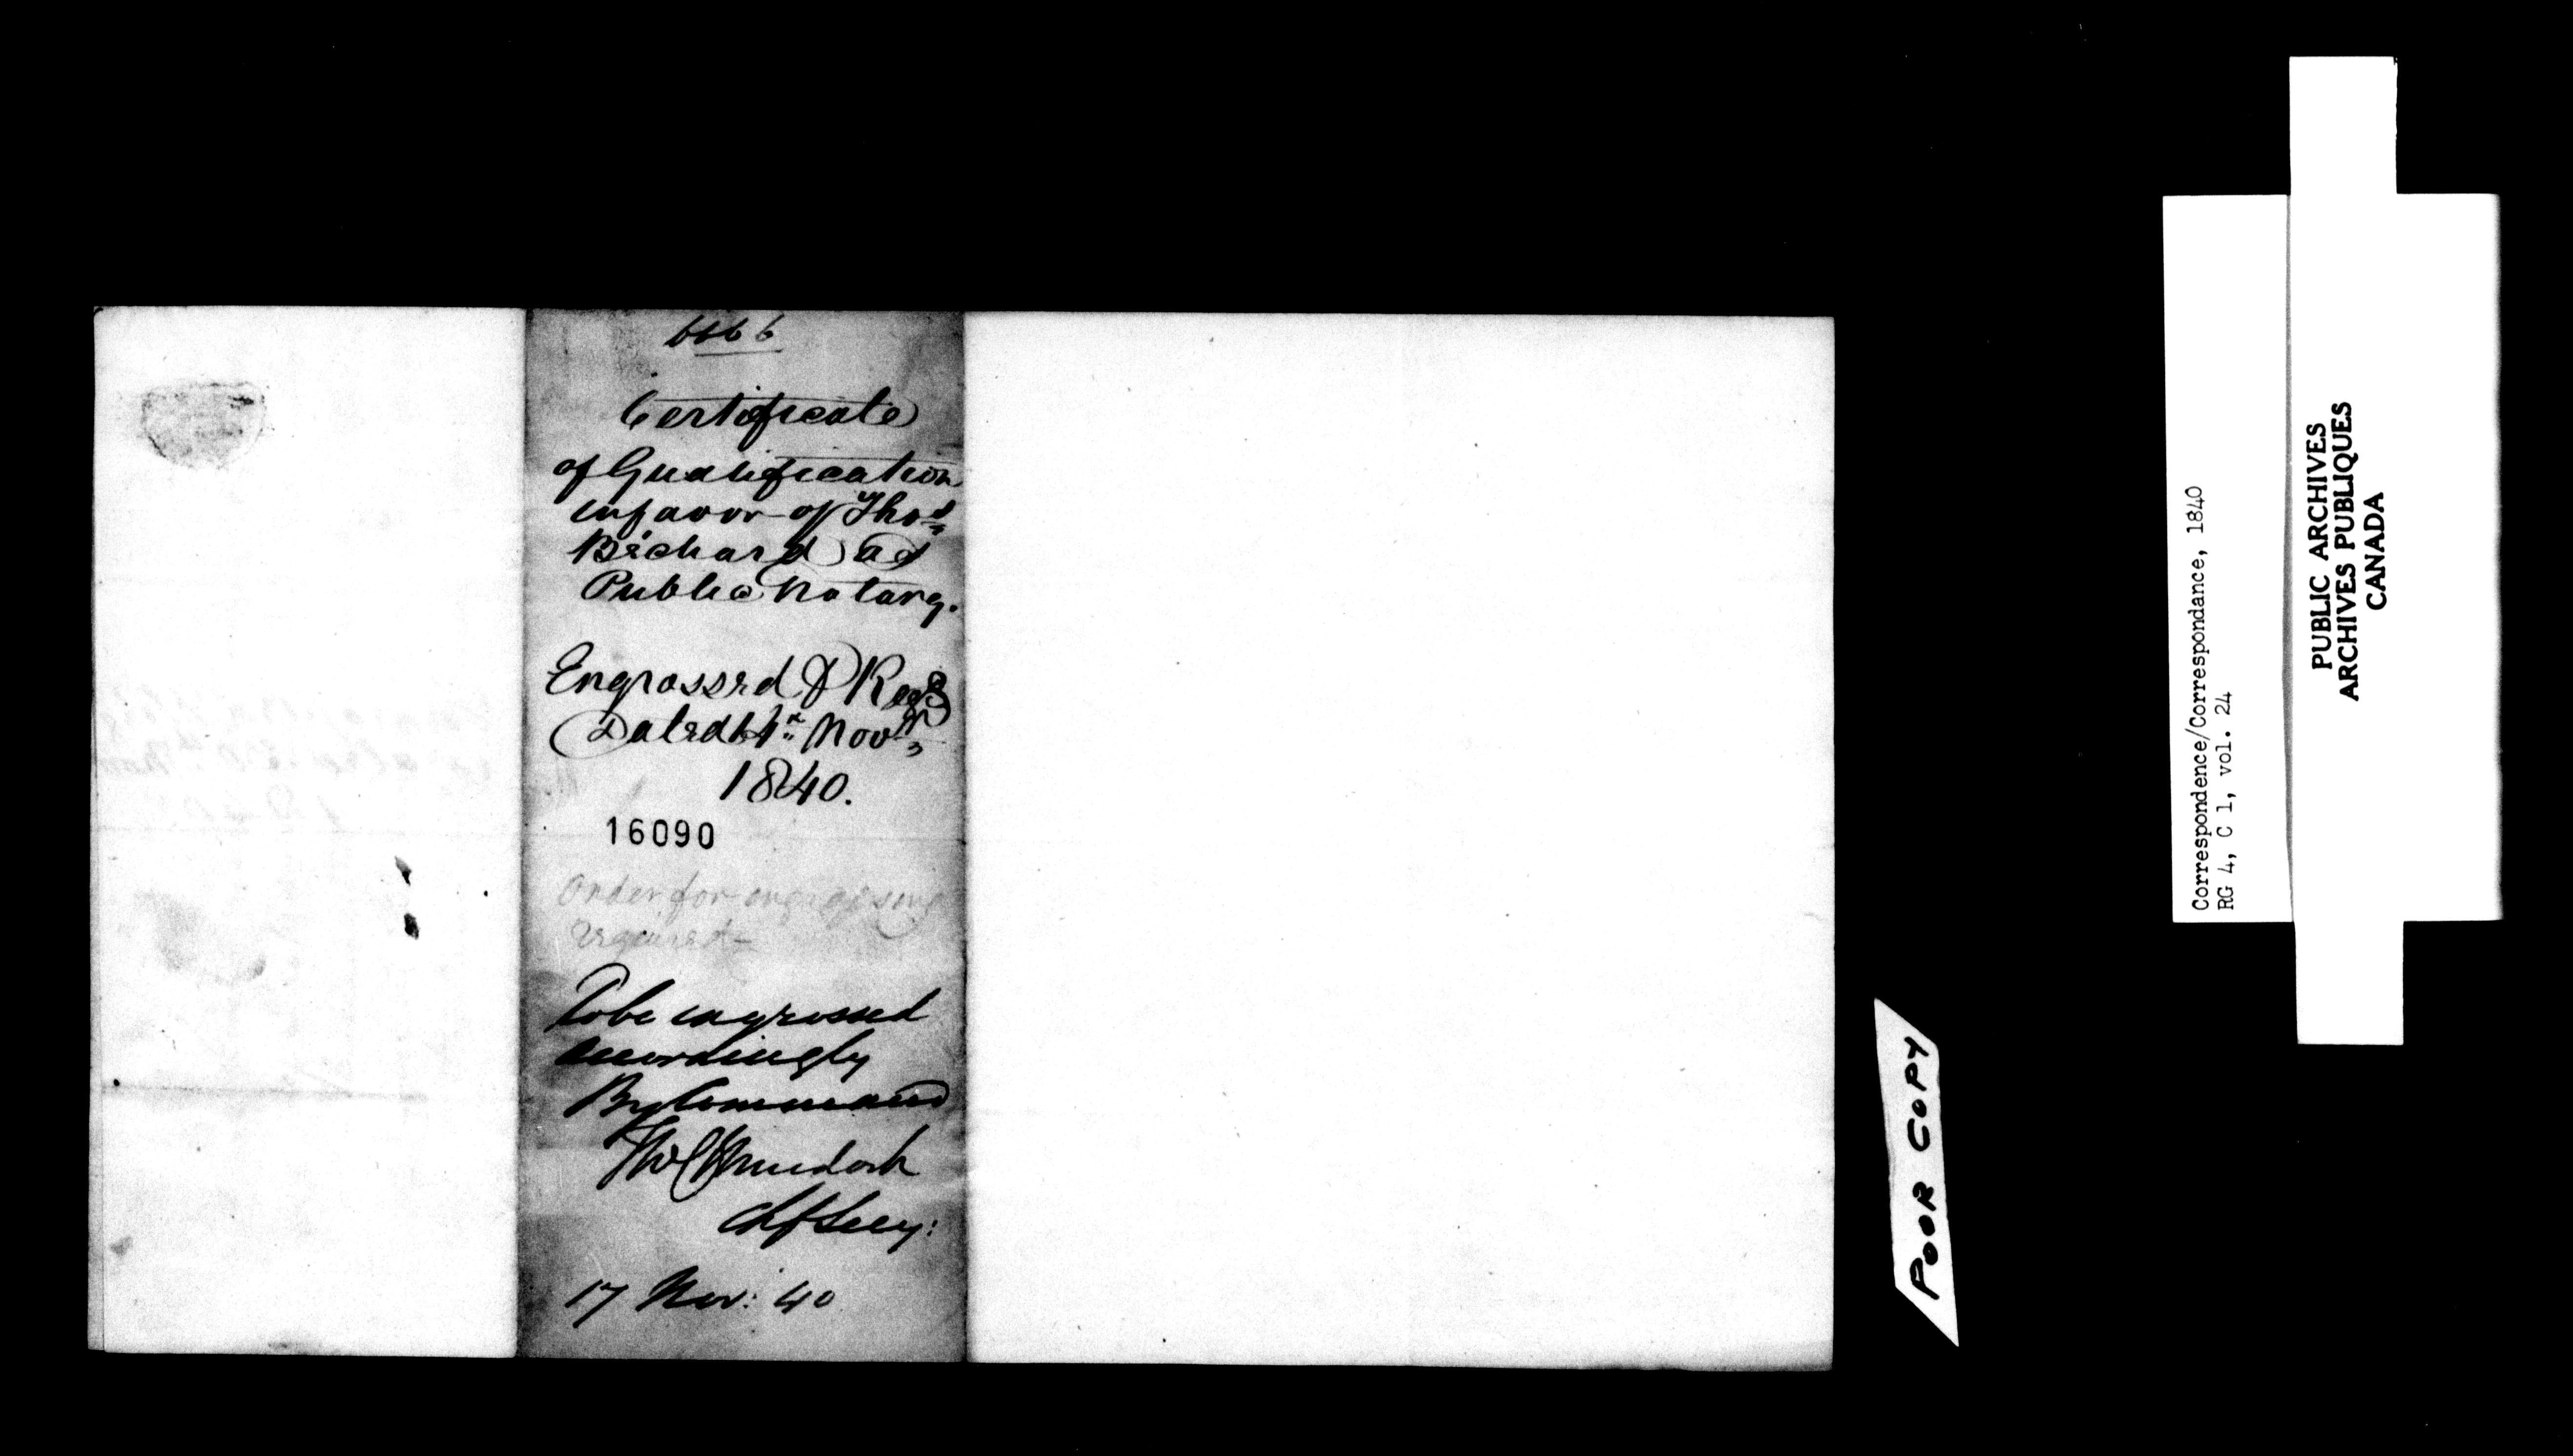 Certificate
of Qualification
in favor of Thos
Bechard as
Public Notary.
Engrossed & Regd
Dated 14th Novr
1840.
16090
Order for engrossing
required—
To be engrossed
accordingly
By Command
Th W C Murdoch
Chf Secy:
17 Nov: 40
POOR COPY
Correspondence/Correspondance, 1840
RG 4, C 1, vol. 24
PUBLIC ARCHIVES
ARCHIVES PUBLIQUES
CANADA